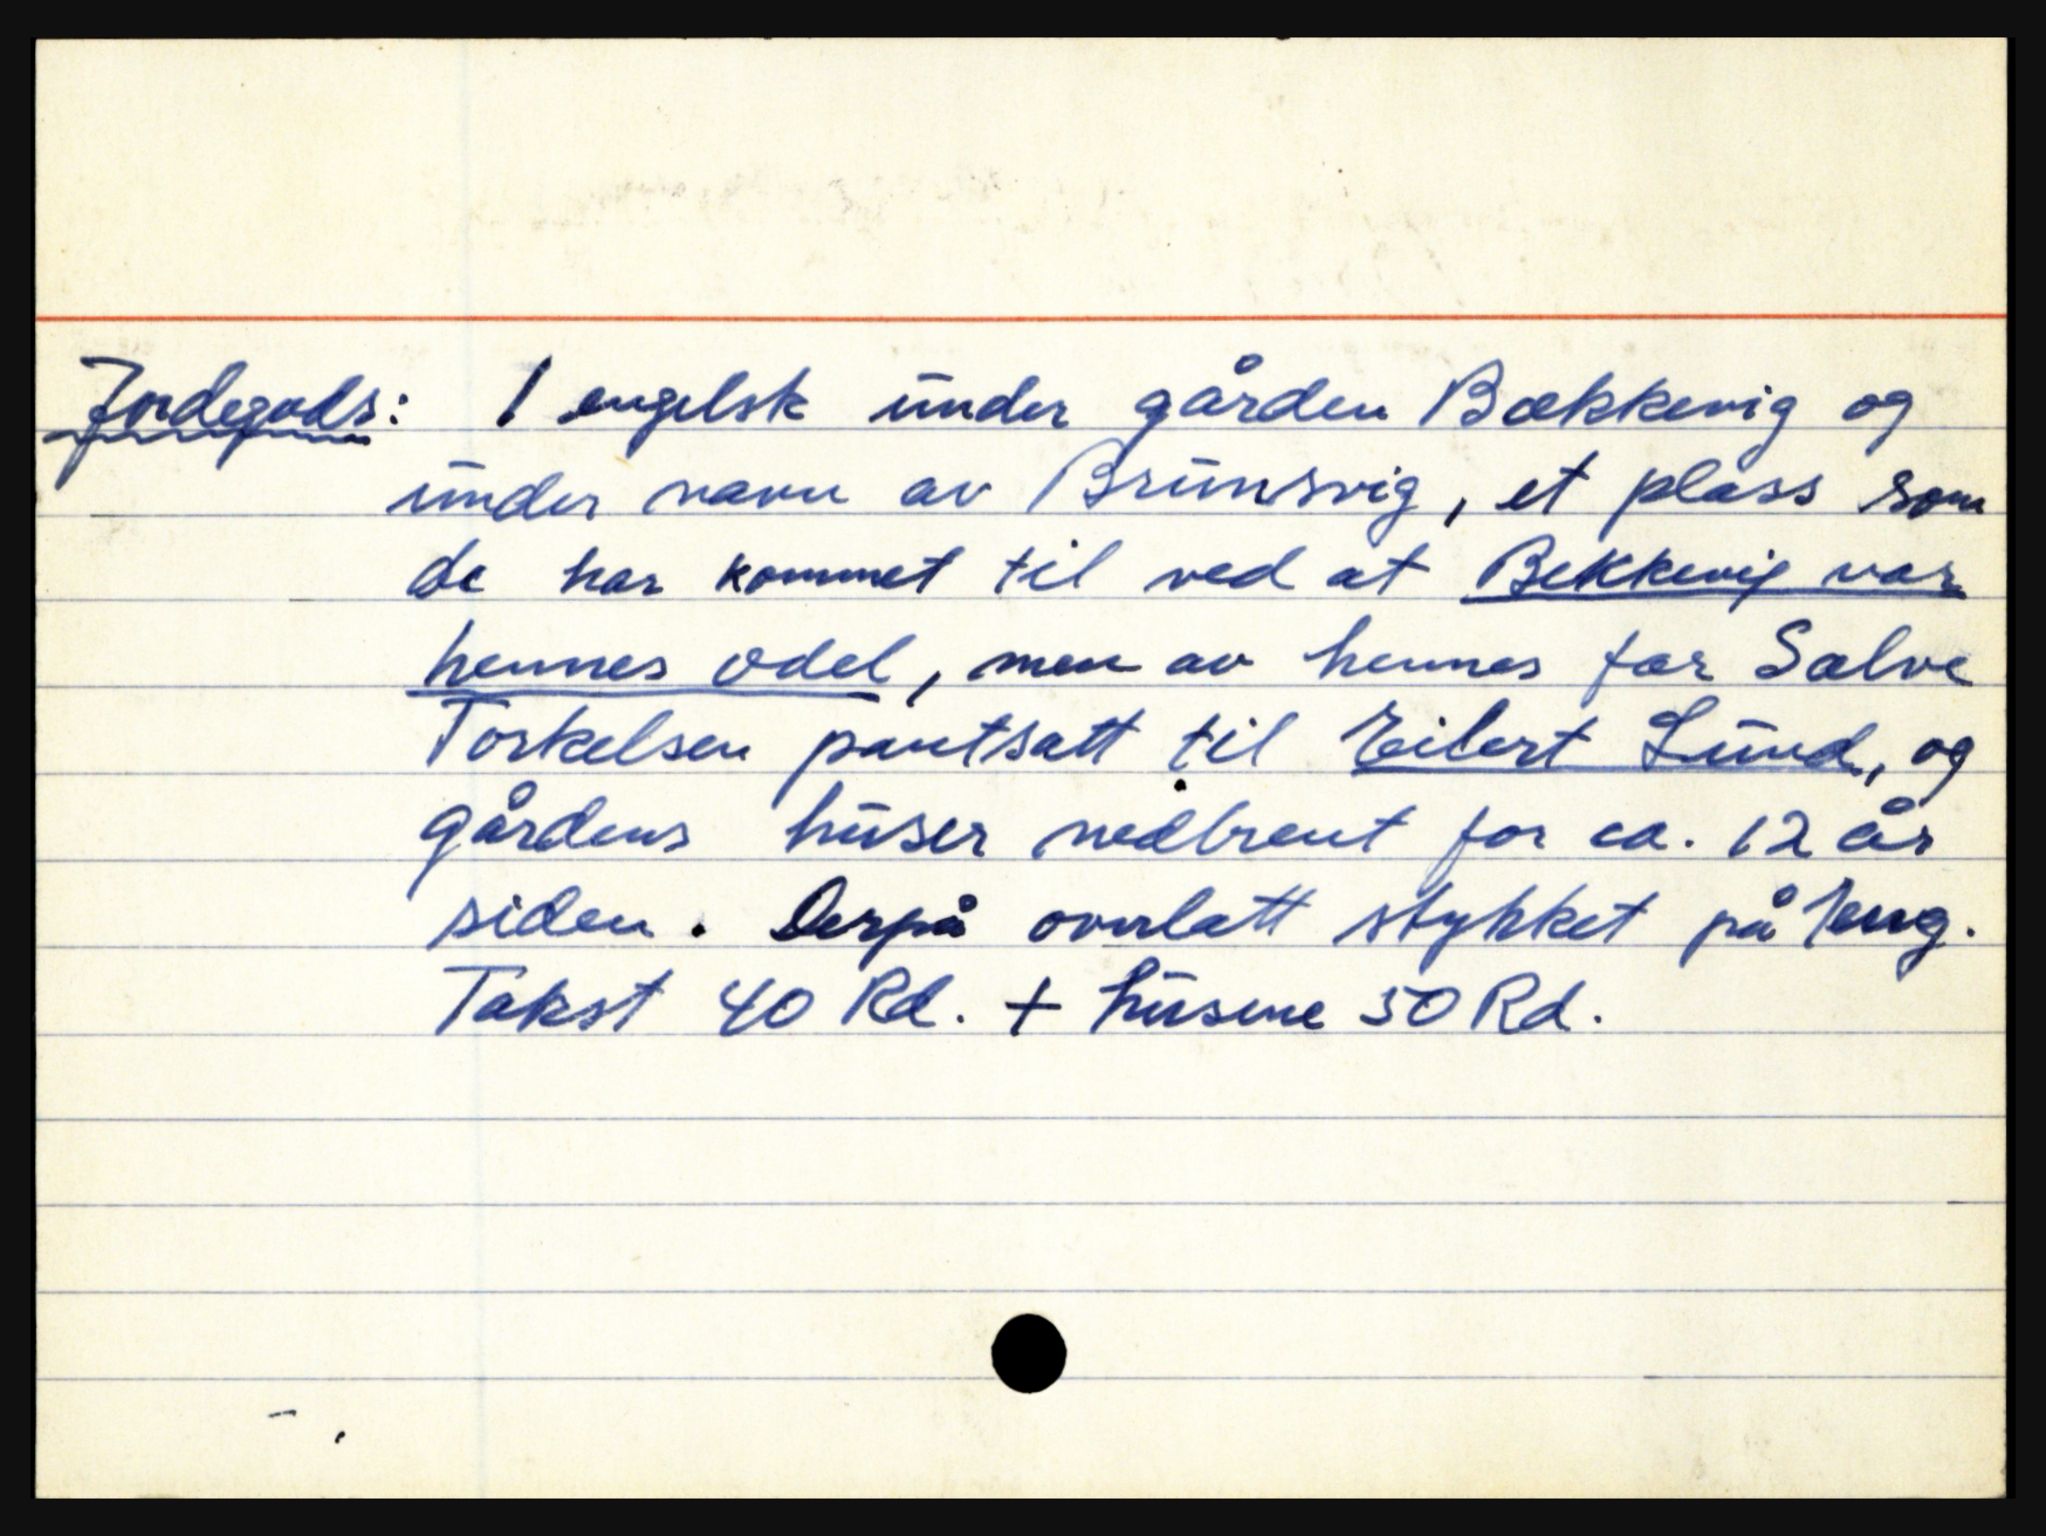 Jordegods: 1 engelsk under gården Bækkevig og
under navn av Brunsvig, et plass som
de har kommet til ved at Bekkevig var
hennes odel, men av hennes far Salve
Torkelsen pantsatt til Eilert Lund, og
gårdens huser nedbrent for ca. 12 år
siden. Derpå overlatt stykket på 1 eng.
Takst 40 Rd. + husene 50 Rd.